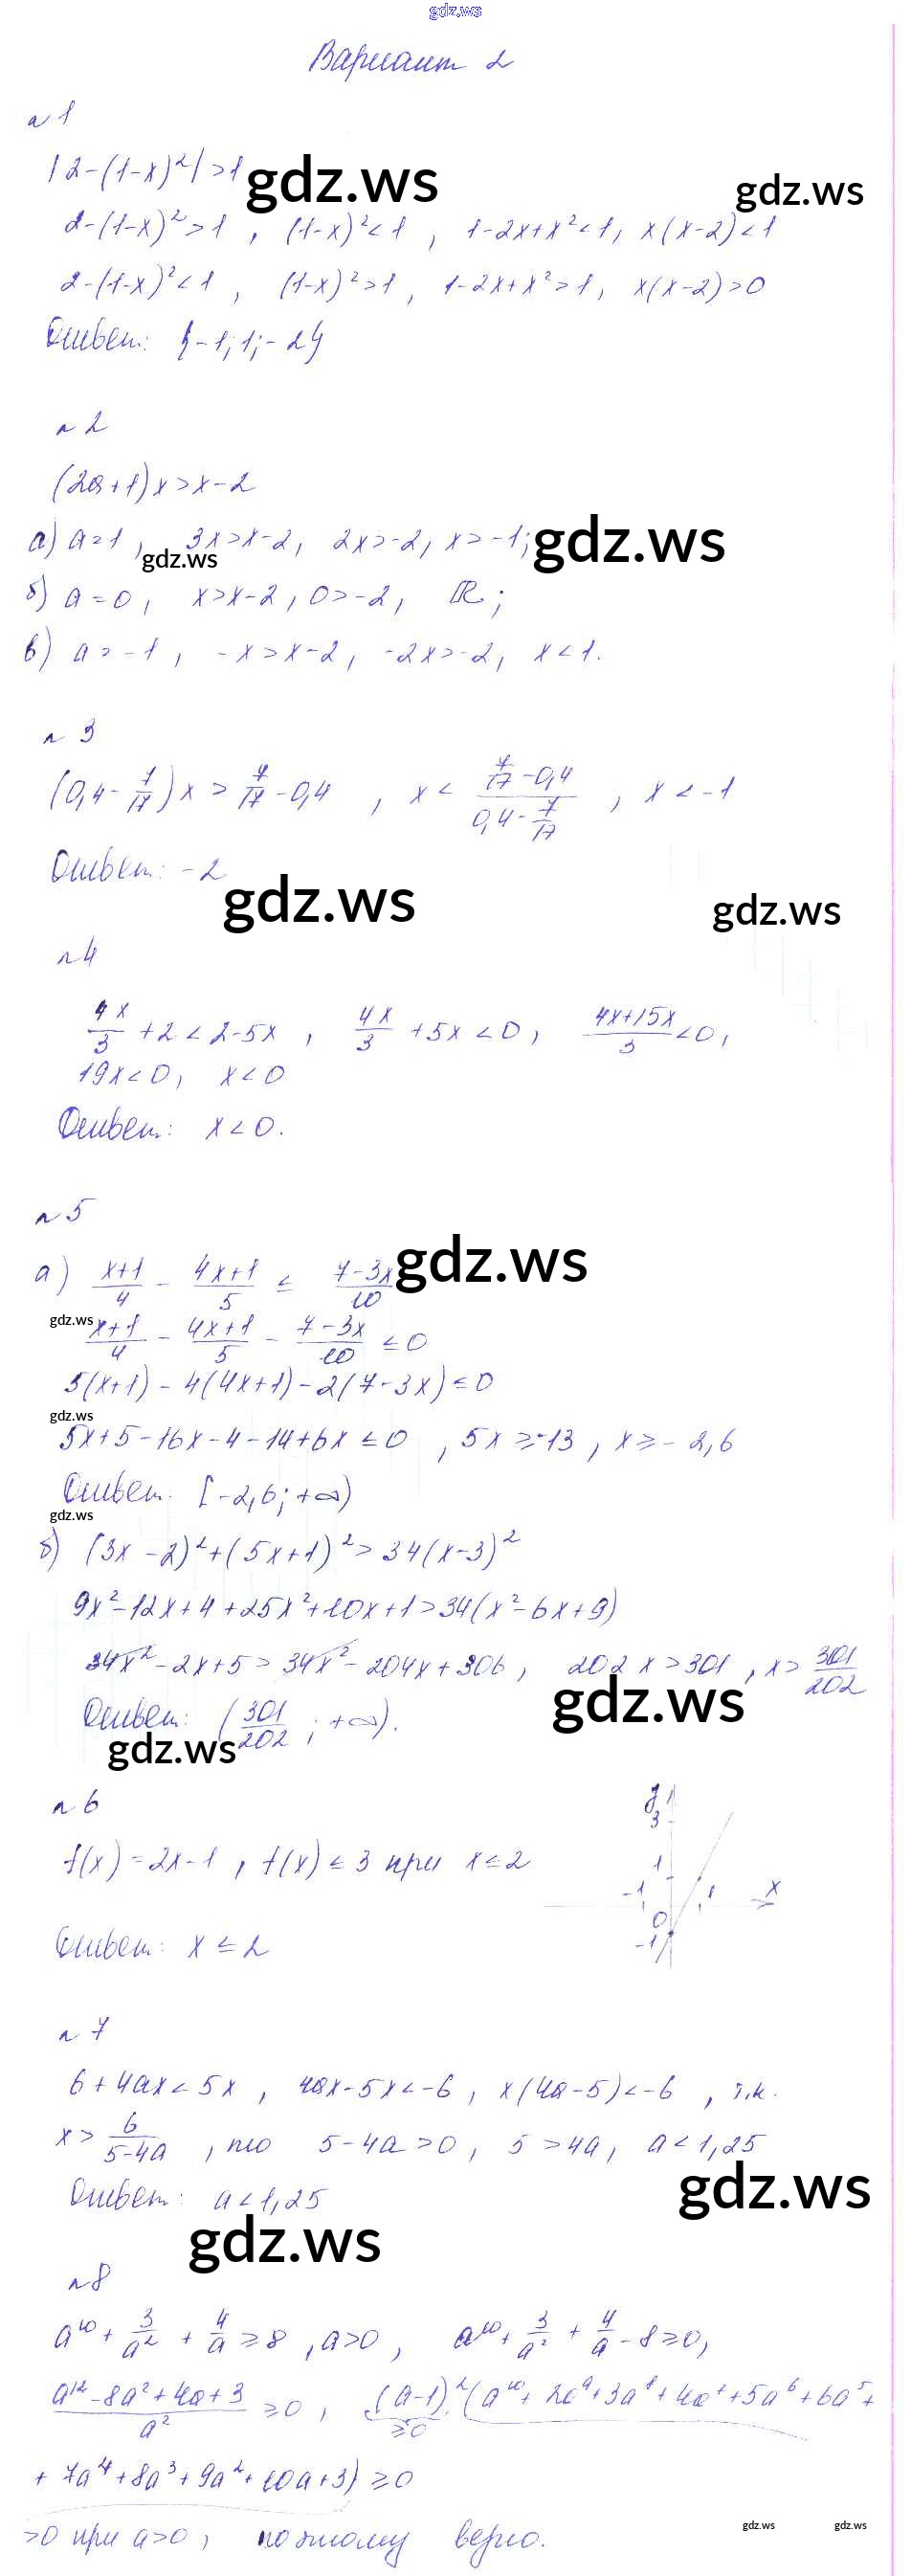 gdz.ws
Вариант 2
n 1
|2-(1-x)²|>1 gdz.ws gdz.ws
2-(1-x)²>1, (1-x)²<1, 1-2x+x²<1, x(x-2)<1
2-(1-x)²<1, (1-x)²>1, 1-2x+x²>1, x(x-2)>0
Ответ: {-1; 1; -2}
n 2
(2a+1)x>x-2
а) a=1, 3x>x-2, 2x>-2, x>-1; gdz.ws
gdz.ws
б) a=0, x>x-2, 0>-2, ℝ;
в) a=-1, -x>x-2, -2x>-2, x<1.
n 3
(0,4-7/17)x > 7/17-0,4, x < (7/17-0,4)/(0,4-7/17), x<-1
Ответ: -2
gdz.ws gdz.ws
n 4
4x/3+2<2-5x, 4x/3+5x<0, (4x+15x)/3<0,
19x<0, x<0
Ответ: x<0.
n 5
а) (x+1)/4 - (4x+1)/5 ≤ (7-3x)/10 gdz.ws
gdz.ws
(x+1)/4 - (4x+1)/5 - (7-3x)/10 ≤0
5(x+1)-4(4x+1)-2(7-3x)≤0
gdz.ws
5x+5-16x-4-14+6x≤0, 5x≥-13, x≥-2,6
Ответ: [-2,6; +∞)
gdz.ws
б) (3x-2)²+(5x+1)²>34(x-3)²
9x²-12x+4+25x²+10x+1>34(x²-6x+9)
34x²-2x+5>34x²-204x+306, 202x>301, x>301/202
gdz.ws
Ответ: (301/202; +∞).
gdz.ws
n 6
f(x)=2x-1, f(x)≤3 при x≤2
Ответ: x≤2
y
3
1
-1 1 x
0
-1
n 7
6+4ax<5x, 4ax-5x<-6, x(4a-5)<-6, т.к.
x>6/(5-4a), то 5-4a>0, 5>4a, a<1,25
Ответ: a<1,25 gdz.ws
gdz.ws
n 8
a¹⁰+3/a²+4/a≥8, a>0, a¹⁰+3/a²+4/a-8≥0,
(a¹²-8a²+4a+3)/a² ≥0, (a-1)²(a¹⁰+2a⁹+3a⁸+4a⁷+5a⁶+6a⁵+
≥0
+7a⁴+8a³+9a²+10a+3)≥0
>0 при a>0, поэтому верно.
gdz.ws gdz.ws